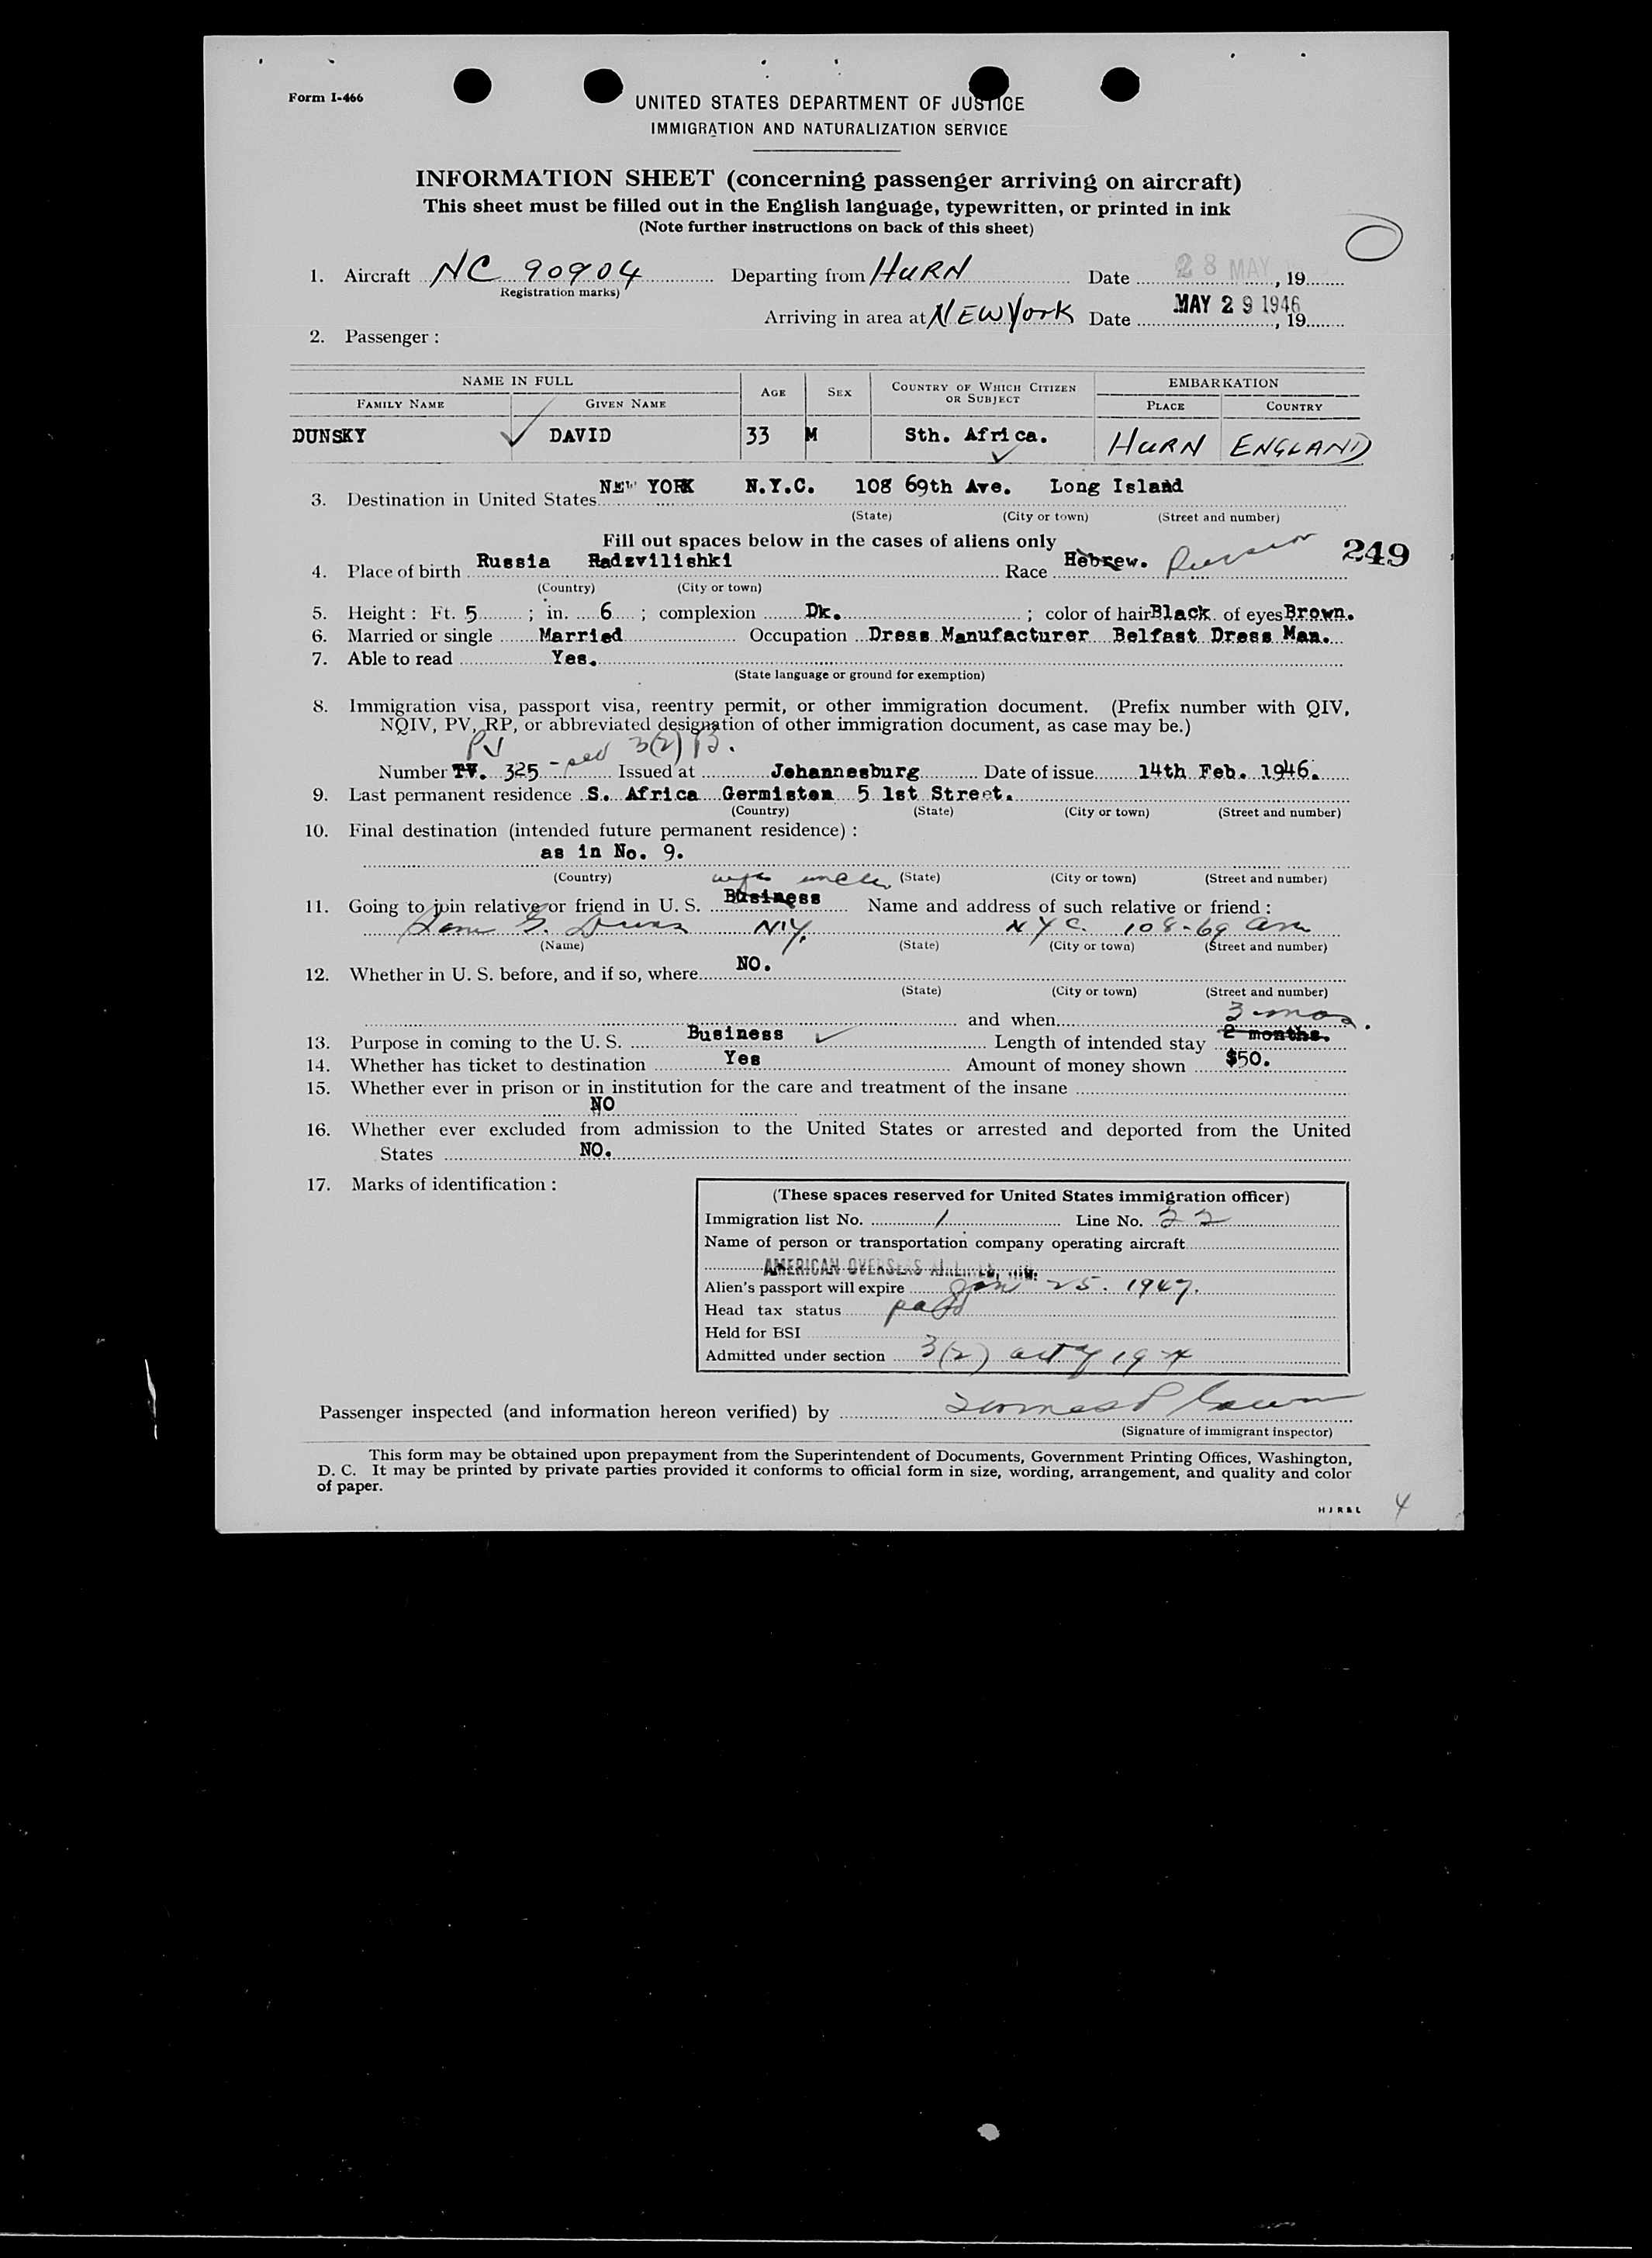 Form I-466
UNITED STATES DEPARTMENT OF JUSTICE
IMMIGRATION AND NATURALIZATION SERVICE
INFORMATION SHEET (concerning passenger arriving on aircraft)
This sheet must be filled out in the English language, typewritten, or printed in ink
(Note further instructions on back of this sheet)
1. Aircraft NC 90904 Departing from HURN Date 28 MAY, 19
(Registration marks)
Arriving in area at NEW York Date MAY 29 1946, 19
2. Passenger :
NAME IN FULL AGE SEX COUNTRY OF WHICH CITIZEN OR SUBJECT EMBARKATION
FAMILY NAME GIVEN NAME PLACE COUNTRY
DUNSKY DAVID 33 M Sth. Africa. HURN ENGLAND
3. Destination in United States NEW YORK N.Y.C. 108 69th Ave. Long Island
(State) (City or town) (Street and number)
Fill out spaces below in the cases of aliens only
249
4. Place of birth Russia Radzvilishki Race Hebrew. Russian
(Country) (City or town)
5. Height : Ft. 5 ; in. 6 ; complexion Dk. ; color of hair Black. of eyes Brown.
6. Married or single Married Occupation Dress Manufacturer Belfast Dress Man.
7. Able to read Yes.
(State language or ground for exemption)
8. Immigration visa, passport visa, reentry permit, or other immigration document. (Prefix number with QIV,
NQIV, PV, RP, or abbreviated designation of other immigration document, as case may be.)
PV 3(2)
Number TV. 325 Issued at Johannesburg Date of issue 14th Feb. 1946.
9. Last permanent residence S. Africa Germiston 5 1st Street.
(Country) (State) (City or town) (Street and number)
10. Final destination (intended future permanent residence) :
as in No. 9.
(Country) (State) (City or town) (Street and number)
wife uncle
11. Going to join relative or friend in U. S. Business Name and address of such relative or friend :
Sam G. N.Y. N Y C. 108-69 Ave
(Name) (State) (City or town) (Street and number)
12. Whether in U. S. before, and if so, where NO.
(State) (City or town) (Street and number)
and when
3 mos.
13. Purpose in coming to the U. S. Business Length of intended stay 2 months.
14. Whether has ticket to destination Yes Amount of money shown $50.
15. Whether ever in prison or in institution for the care and treatment of the insane
NO
16. Whether ever excluded from admission to the United States or arrested and deported from the United
States NO.
17. Marks of identification :
(These spaces reserved for United States immigration officer)
Immigration list No. 1 Line No. 22
Name of person or transportation company operating aircraft
AMERICAN OVERSEAS AIRLINES, INC.
Alien's passport will expire Jan 25. 1947.
Head tax status paid
Held for BSI
Admitted under section 3(2) act of 1924
Passenger inspected (and information hereon verified) by
(Signature of immigrant inspector)
This form may be obtained upon prepayment from the Superintendent of Documents, Government Printing Offices, Washington,
D. C. It may be printed by private parties provided it conforms to official form in size, wording, arrangement, and quality and color
of paper.
HJR&L 4